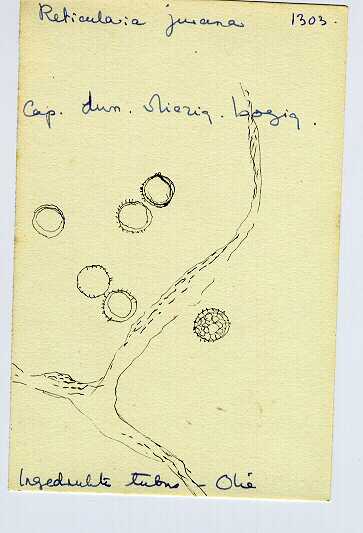 Reticularia jurana 1303.
Cap. dun. vliezig. bogig.
Ingedrukte tubus - Olie